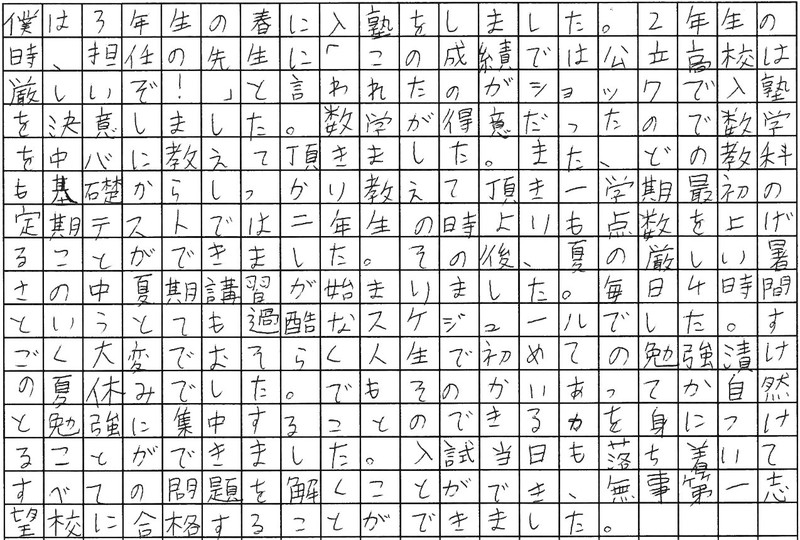 僕は3年生の春に入塾をしました。2年生の
時、担任の先生に「この成績では公立高校は
厳しいぞ!」と言われたのがショックで入塾
を決意しました。数学が得意だったので数学
を中心に教えて頂きました。また、どの教科
も基礎からしっかり教えて頂き一学期最初の
定期テストでは二年生の時よりも点数を上げ
ることができました。その後、夏の厳しい暑
さの中夏期講習が始まりました。毎日4時間
というとても過酷なスケジュールでした。す
ごく大変でおそらく人生で初めての勉強漬け
の夏休みでした。でもそのかいあってか自然
と勉強に集中することのできる力を身につけ
ることができました。入試当日も落ち着いて
すべての問題を解くことができ、無事第一志
望校に合格することができました。